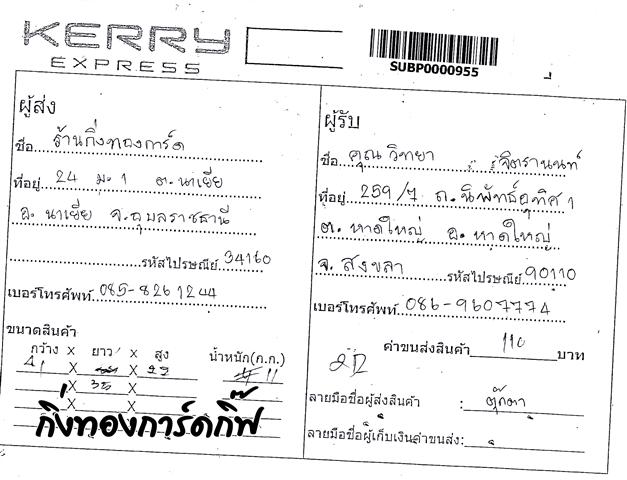 KERRY
EXPRESS
SUBP0000955
ผู้ส่ง
ชื่อ ร้านกิ่งทองการ์ด
ที่อยู่ 24 ม.1 ต.นาเยีย
อ. นาเยีย จ.อุบลราชธานี
รหัสไปรษณีย์ 34160
เบอร์โทรศัพท์ 085-8261244
ขนาดสินค้า
กว้าง X ยาว X สูง น้ำหนัก(ก.ก.)
41 X X 23 11
35 X
X
กิ่งทองการ์ดกิ๊ฟ
ผู้รับ
ชื่อ คุณ วิทยา จิตรานนท์
ที่อยู่ 259/7 ถ.นิพัทธ์อุทิศ 1
ต. หาดใหญ่ อ. หาดใหญ่
จ. สงขลา รหัสไปรษณีย์ 90110
เบอร์โทรศัพท์ 086-9607774
ค่าขนส่งสินค้า 110 บาท
ลายมือชื่อผู้ส่งสินค้า : ตุ๊กตา
ลายมือชื่อผู้เก็บเงินค่าขนส่ง: